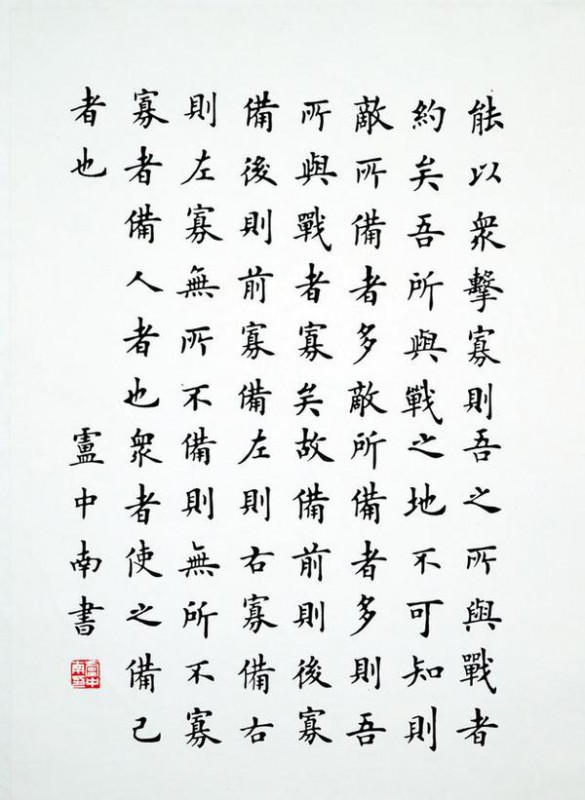 能以衆擊寡則吾之所與戰者
約矣吾所與戰之地不可知則
敵所備者多敵所備者多則吾
所與戰者寡矣故備前則後寡
備後則前寡備左則右寡備右
則左寡無所不備則無所不寡
寡者備人者也衆者使之備己
者也
盧中南書
盧中南